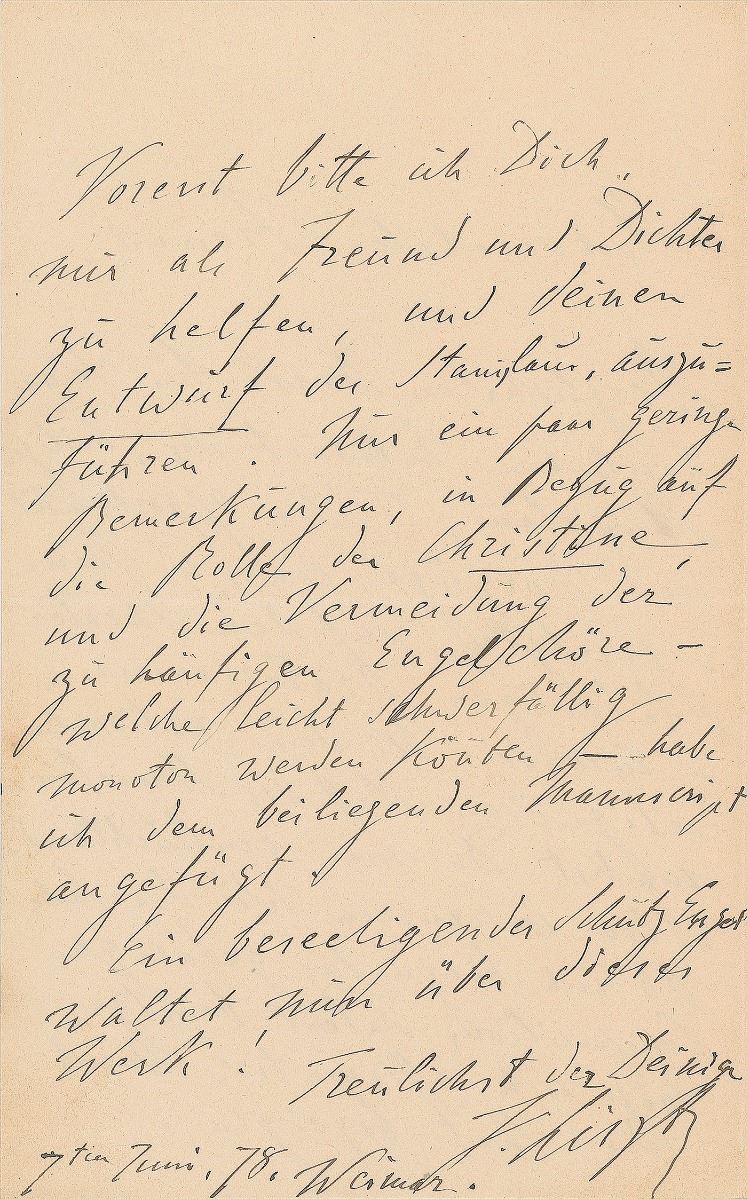 Vorerst bitte ich Dich,
mir als Freund und Dichter
zu helfen, und deinen
Entwurf des Stanislaus, auszu=
führen. Nur ein paar geringe
Bemerkungen, in Bezug auf
die Rolle der Christine,
und die Vermeidung der
zu häufigen Engelchöre –
welche leicht schwerfällig
monoton werden könten – habe
ich dem beiliegenden Manuscript
angefügt.
Ein beseeligender Schutz Engel
waltet nun über dieses
Werk!
Treulichst der Deinige
F. Liszt
7ten Juni, 78, Weimar.